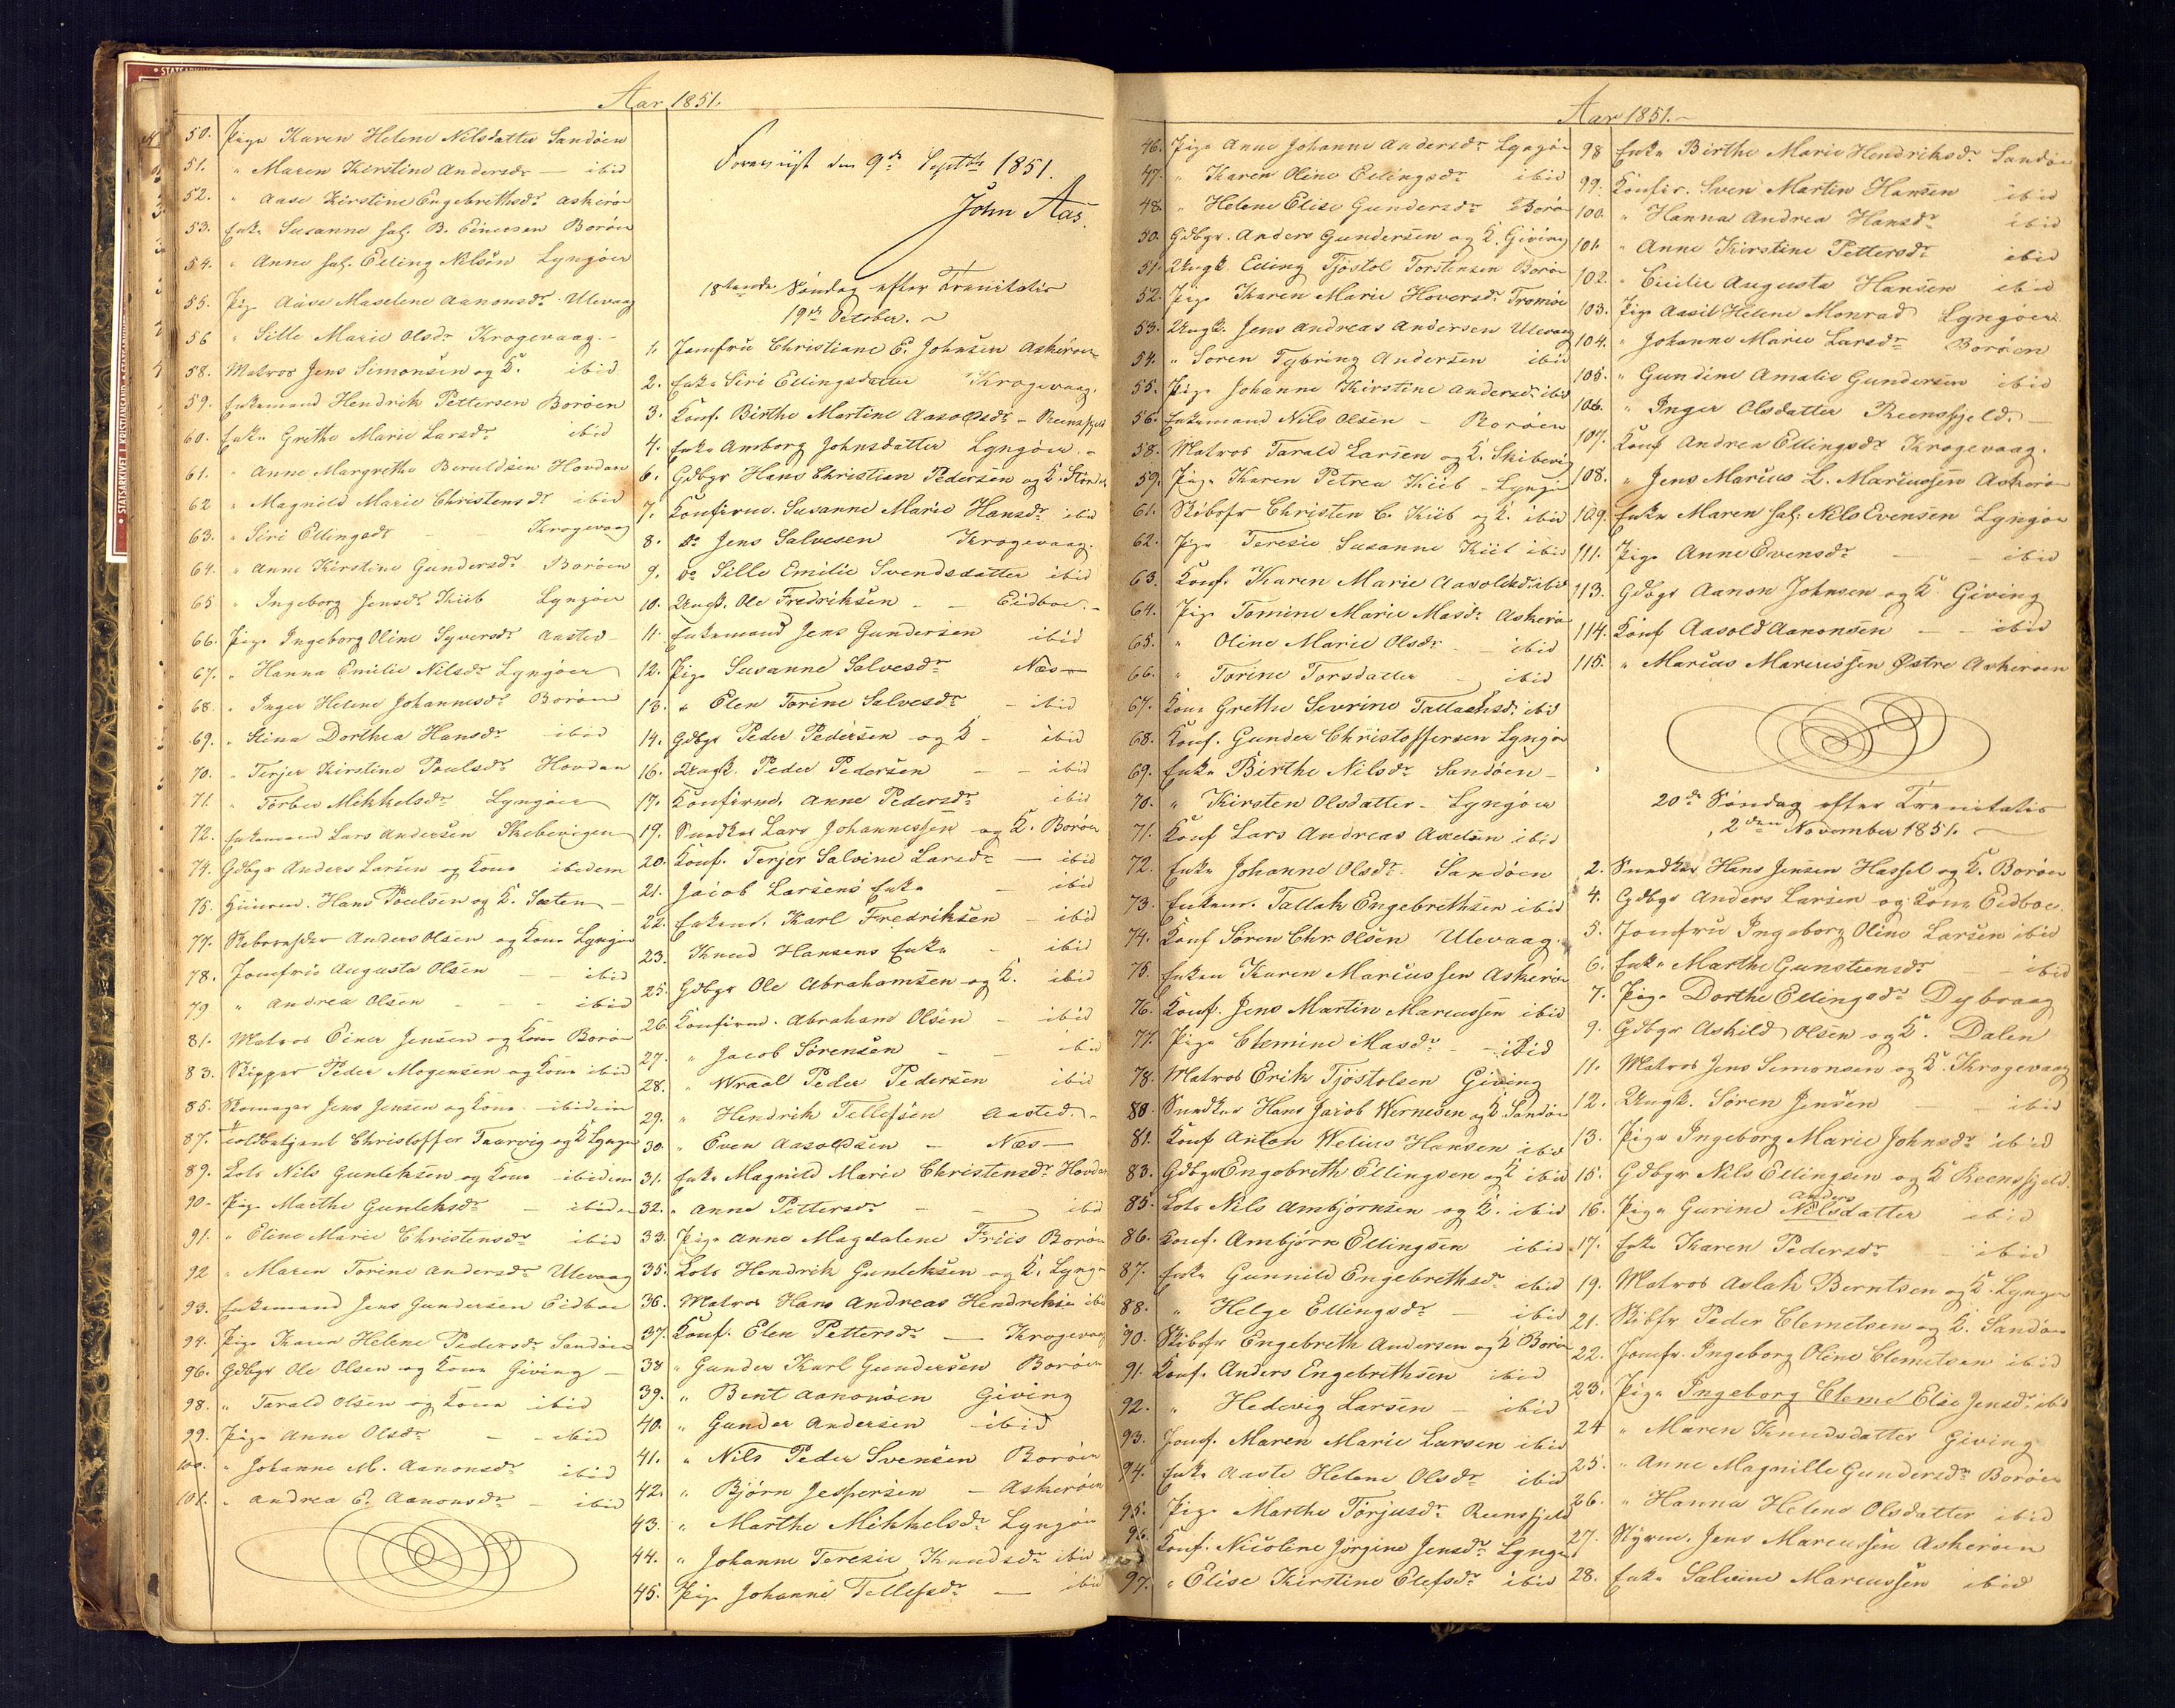 Aar 1851.
50. Pige Karen Helene Nilsdatter Sandøen
51. " Maren Kirstine Andersdr — ibid
52. " Aase Kirstine Engebrethsdr Askerøn
53. Enke Susanne sal. B. Einersen Borøen
54. " Anne sal. Elling Nilsen Lyngøer
55. Pig Aase Maselene Aanonsdr Ulevaag
56 " Sille Marie Olsdr Krogevaag. -
58. Matros Jens Simonsen og K. ibid
59. Enkemand Hendrik Pettersen Borøen
60. Enke Grethe Marie Larsdr ibid
61. " Anne Margrethe Beruldsen Hovdan
62 " Magnild Marie Christensdr ibid
63. " Siri Ellingsdr - Krogevaag
64. " Anne Kirstine Gundersdr Borøen
65 " Ingeborg Jensdr Kiib Lyngøer
66. Pige Ingeborg Oline Syversdr Aasted -
67. " Hanna Emilie Nilsdr Lyngøer
68. " Inger Helene Johannesdr Borøen
69. " Stina Dorthea Hansdr ibid
70. " Terjer Kirstine Poulsdr Hovdan
71. " Torber Mikkelsdr Lyngøer
72. Enkemand Lars Andersen Skibevigen
74. Gdbgr Anders Larsen og Kone ibidem
75. Huusm. Hans Poulsen og K. Sæten -
77. Anders Olsen og Kone Lyngør
78. Jomfrue Augusta Olsen - - ibid
79 " Andrea Olsen - - - ibid
81. Matros Einer Jensen og Kone Borøn
83. Skipper Peder Mogensen og Kone ibid
85. Skomager Jens Jensen og Kone ibidem
87. Toldbetjent Christoffer Taarvig og K Lyngør
89. Lods Nils Gunleksen og Kone ibidem
90. Pige Marthe Gunleksdr - ibidem
91. " Eline Marie Christensdr ibid
92 " Maren Torine Andersdr Ulevaag
93. Enkemand Jens Gundersen Eidboe
94. Pige Karen Helene Pedersdr Sandøen
96. Gdbgr Ole Olsen og Kone Giving -
98. " Tarald Olsen og Kone ibid
99. Pige Anne Olsdr - - ibid
100. " Johanne M. Aanonsdr ibid
101. " Andrea E. Aanonsdr - ibid
Foreviist den 9de Septbr 1851.
John Aas.
18tende Søndag efter Trenitatis
19de October. ~
1. Jomfrue Christiane E. Johnsen Askerøen
2. Enke Siri Ellingsdatter Krogevaag.
3. Konf. Birthe Martine Aasoldsdr - Reensfjeld
4. Enke Amborg Johnsdatter Lyngøer. -
6. Gdbgr Hans Christian Pedersen og K.
7. Konfirm. Susanne Marie Hansdr ibid
8. Do Jens Salvesen Krogevaag.
9. Do Sille Emilie Svendsdatter ibid
10. Ungk. Ole Fredriksen - - Eidboe. -
11. Enkemand Jens Gundersen ibid
12. Pige Susanne Salvesdr Næs -
13. " Elen Torine Salvesdr - ibid
14. Gdbgr Peder Pedersen og K - ibid
16. Ungk. Peder Pedersen - - ibid
17. Konfirm. Anne Pedersdr ibid
19. Lars Johannessen og K. Borøen
20. Konf. Terjer Salvine Larsdr - ibid
21. Jacob Larsens Enke - ibid
22. Enkem. Karl Fredriksen - ibid
23. Knud Hansens Enke - ibid
25. Gdbgr Ole Abrahamsen og K. ibid
26. Konfirm. Abraham Olsen - ibid
27. " Jacob Sørensen - - ibid
28. " Wraal Peder Pedersen ibid
29. " Hendrik Tellefsen Aasted. -
30. " Even Aasoldsen - Næs -
31. Enke Magnild Marie Christensdr Hovdan
32. " Anne Pettersdr - - ibid
33. Pige Anne Magdalene Friis Borøn
35. Lods Hendrik Gunleksen og K. Lyngør
36. Matros Hans Andreas Hendriksen ibid
37. Konf. Elen Pettersdr — Krogevaag
38 " Gunder Karl Gundersen Borøen
39. " Bent Aanonsen Giving
40. " Gunder Andersen ibid
41. " Nils Peder Svensen Borøen
42. " Bjørn Jespersen - Askerøen
43. " Marthe Mikkelsdr Lyngør
44. " Johanne Teresie Knudsdr ibid
45. Pige Johanne Tellefsdr — ibid
Aar 1851. -
46. Pige Anne Johanne Andersdr Lyngør
47. " Karen Oline Ellingsdr ibid
48. " Helene Elise Gundersdr Borøn
50. Gdbgr. Anders Gundersen og K. Giving
51. Ungk. Elling Tjøstol Torstensen Borøn
52. Pige Karen Marie Hoversdr Tromøe
53. Ungk. Jens Andreas Andersen Ulevaag
54. " Søren Tybring Andersen ibid
55. Pige Johanne Kirstine Andersdr ibid
56. Enkemand Nils Olsen - Borøen
58. Matros Tarald Larsen og K. Skibevig
59. Pige Karen Petrea Kiib - Lyngør
61. Skibsfr Christen C. Kiib og K. ibid
62. Pige Teresie Susanne Kiil ibid
63. Konf. Karen Marie Aasoldsdr ibid
64. Pige Tomine Marie Masdr Askerøn
65. " Oline Marie Olsdr - ibid
66. " Torine Torsdatter - ibid
67. Kone Grethe Severine Tallaksdr ibid
68. Konf. Gunder Christoffersen Lyngør
69. Enke Birthe Nilsdr Sandøen -
70. " Kirsten Olsdatter - Lyngøer
71. Konf Lars Andreas Axelsen ibid
72. Enke Johanne Olsdr Sandøen
73. Enkem. Tallak Engebrethsen ibid
74. Konf Søren Chr Olsen Ulevaag.
75. Enken Karen Mariussen Askerøn
76. Konf. Jens Martin Marcussen ibid
77. Pige Clemine Masdr - - ibid
78. Matros Erik Tjøstolsen Giving
80. Hans Jacob Wernesen og K Sandøn
81. Konf Anton Welius Hansen ibid
83. Gdbgr Engebreth Ellingsen og K ibid
85. Lods Nils Ambjørnsen og K. ibid
86. Konf. Ambjørn Ellingsen ibid
87. Enke Gunnild Engebrethsdr ibid
88. " Helge Ellingsdr — ibid
90. Skibsfr Engebreth Andersen og K Borøn
91. Konf. Anders Engebrethsen ibid
92. " Hedevig Larsen - ibid
93. Jomf. Maren Marie Larsen ibid
94. Enke Aaste Helene Olsdr ibid
95. Pige Marthe Torjusdr Reensfjeld
96. Konf. Nicoline Jørgine Jensdr Lyngør
97. " Elise Kirstine Elefsdr ibid
98 Enke Birthe Marie Hendriksdr Sandøn
99. Konfir. Sven Martin Hansen ibid
100. " Hanna Andrea Hansdr ibid
101. " Anne Kirstine Pettersdr ibid
102. " Cicilie Augusta Hansen ibid
103. Pige Aasil Helene Monrad Lyngøer
104. " Johanne Marie Larsdr Borøen
105. " Gundine Amalie Gundersen ibid
106. " Inger Olsdatter Reensfjeld. -
107. Konf Andrea Ellingsdr Krogevaag.
108. " Jens Marius L. Mariussen Askerøn
109. Enke Maren sal. Nils Evensen Lyngør
111. Pige Anne Evensdr - - ibid
113. Gdbgr Aanon Johnsen og K Giving
114. Konf Aasold Aanonsen - - ibid
115. " Marius Mariussen Østre Askerøen
20de Søndag efter Trenitatis
2den November 1851. -
2. Hans Jensen Hassel og K. Borøen
4. Gdbgr Anders Larsen og Kone Eidboe.
5. Jomfrue Ingeborg Oline Larsen ibid
6. Enke Marthe Gunsteensdr - ibid
7. Pige Dorthe Ellingsdr Dybvaag
9. Gdbgr Askild Olsen og K. Dalen
11. Matros Jens Simonsen og K. Krogevaag
12. Ungk. Søren Jensen - ibid
13. Pige Ingeborg Marie Johnsdr ibid
15. Gdbgr Nils Ellingsen og K Reensfjeld.
Anders
16. Pige Gurine Nilsdatter ibid
17. Enke Karen Pedersdr - ibid
19. Matros Aslak Berntsen og K. Lyngør
21. Skibfr Peder Clemetsen og K. Sandøn
22. Jomfr. Ingeborg Oline Clemetsen ibid
23. Pige Ingeborg Cleme Elise Jensdr ibid
24 " Maren Knudsdatter Giving
25. " Anne Magnille Gundersdr Borøen
26. " Hanna Helene Olsdatter ibid
27. Styrm. Jens Marcussen Askerøen
28. Enke Salvine Marcussen ibid